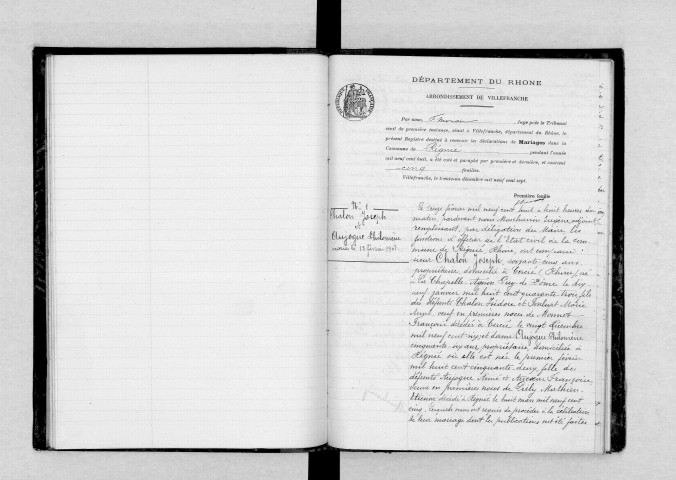 DÉPARTEMENT DU RHONE
ARRONDISSEMENT DE VILLEFRANCHE
Par nous, Juge près le Tribunal
civil de première instance, séant à Villefranche, département du Rhône, le
présent Registre destiné à recevoir les déclarations de Mariages dans la
Commune de Régnié pendant l'année
mil neuf cent huit, a été coté et paraphé par première et dernière, et contient
cinq feuilles.
Villefranche, le trente-un décembre mil neuf cent sept.
Première feuille
N° 1
Chalon Joseph
et
Aujogue Philomène
mariés le 13 février 1908
Le treize février mil neuf cent huit à huit heures du
matin, pardevant nous Monthurion Eugène adjoint
remplissant, par délégation du Maire, les
fonctions d'officier de l'Etat civil de la com
mune de Régnié Rhône, ont comparu:
sieur Chalon Joseph, soixante cinq ans
propriétaire domicilié à Cercié (Rhône) né
à La Chapelle Agnon Puy de Dôme le dix
neuf janvier mil huit cent quarante trois fils
des défunts Chalon Isidore et Marie
veuf en premières noces de Monnet
Françoise décédée à Cercié le vingt décembre
mil neuf cent six; et dame Aujogue Philomène
cinquante six ans, propriétaire, domiciliée à
Régnié où elle est née le premier février
mil huit cent cinquante deux, fille des
défunts Aujogue Aimé et Françoise,
veuve en premières noces de Mathieu
Etienne décédé à Régnié le huit mars mil neuf cent
cinq. Lesquels nous ont requis de procéder à la célébration
de leur mariage dont les publications ont été faites